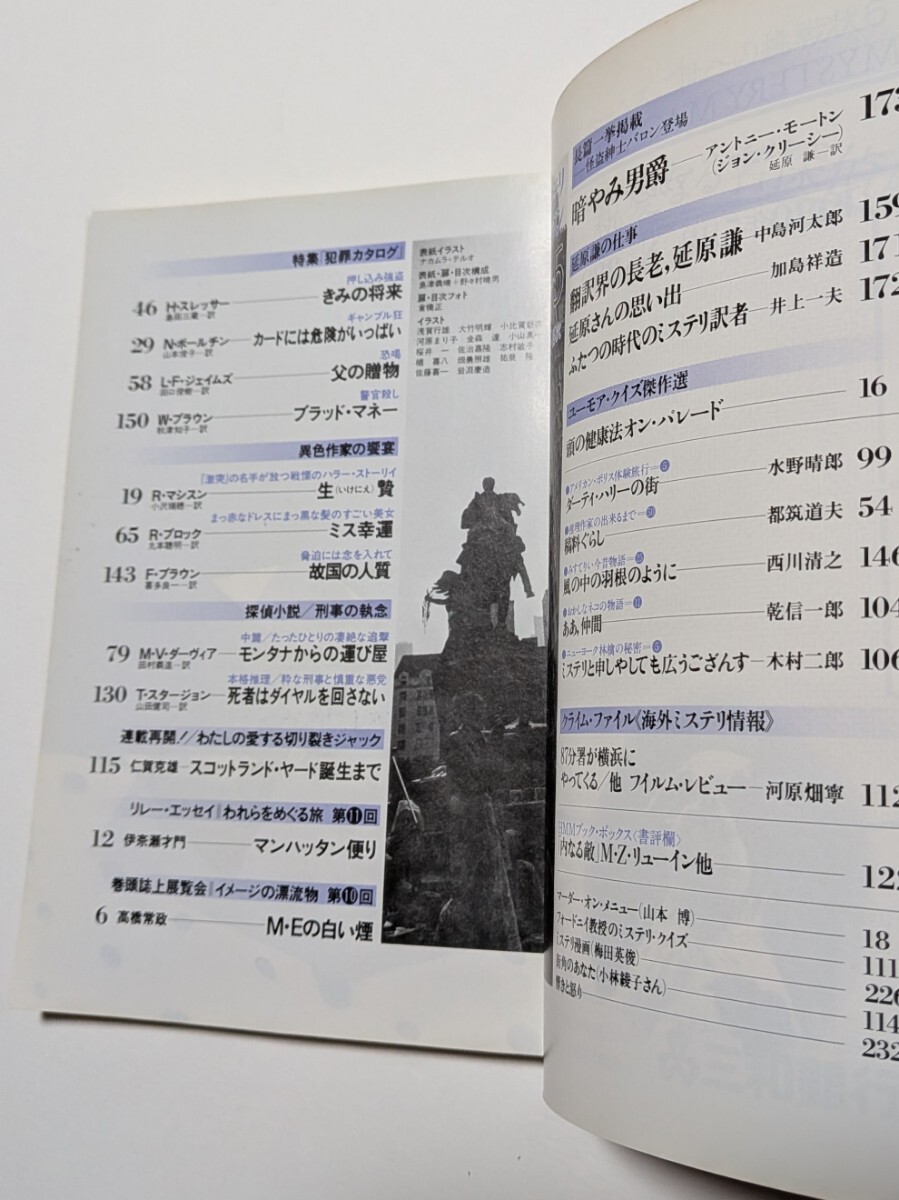 特集『犯罪カタログ』
押し込み強盗
46 H・スレッサー きみの将来
ギャンブル狂
29 N・ボールチン カードには危険がいっぱい
山本俊子=訳
恐喝
58 L・F・ジェイムズ 父の贈物
田口俊樹=訳
警官殺し
150 W・ブラウン ブラッド・マネー
秋津知子=訳
異色作家の饗宴
『激突』の名手が放つ戦慄のハラー・ストーリイ
19 R・マシスン 生(いけにえ)贄
小沢瑞穂=訳
まっ赤なドレスにまっ黒な髪のすごい美女
65 R・ブロック ミス幸運
脅迫には念を入れて
143 F・ブラウン 故国の人質
喜多良一=訳
探偵小説/刑事の執念
中篇/たったひとりの凄絶な追撃
79 M・V・ダーヴィア モンタナからの運び屋
田村義進=訳
本格推理/粋な刑事と慎重な悪党
130 T・スタージョン 死者はダイヤルを回さない
連載再開!/わたしの愛する切り裂きジャック
115 仁賀克雄 スコットランド・ヤード誕生まで
リレー・エッセイ われらをめぐる旅 第11回
12 伊奈瀬才門 マンハッタン便り
巻頭誌上展覧会 イメージの漂流物 第10回
6 高橋常政 M・Eの白い煙
表紙イラスト
ナカムラ・テルオ
表紙・扉・目次構成
島津義晴+野々村晴男
扉・目次フォト
イラスト
浅賀行雄 大竹明輝
河原まり子 金森達
桜井一 佐治嘉隆 志村敏子
楢喜八 畑農照雄 祐泉隆
佐藤喜一 岩淵慶造
長篇一挙掲載
怪盗紳士バロン登場
暗やみ男爵 アントニー・モートン 173
(ジョン・クリーシー)
延原 謙=訳
延原謙の仕事
翻訳界の長老,延原謙 中島河太郎 159
延原さんの思い出 加島祥造 171
ふたつの時代のミステリ訳者 井上一夫 172
ユーモア・クイズ傑作選
頭の健康法オン・パレード 16
●アメリカン・ポリス体験旅行=⑤
ダーティ・ハリーの街 水野晴郎 99
●推理作家の出来るまで=
稿料ぐらし 都筑道夫 54
●みすてりい今昔物語=
風の中の羽根のように 西川清之 146
●おかしなネコの物語=⑪
ああ、仲間 乾信一郎 104
●ニューヨーク林檎の秘密=⑤
ミステリと申しやしても広うござんす 木村二郎 106
クライム・ファイル《海外ミステリ情報》
87分署が横浜に
やってくる/他 フイルム・レビュー 河原畑寧 112
HMMブック・ボックス〈書評欄〉
「内なる敵」M・Z・リューイン他 122
マーダー・オン・メニュー(山本 博) 18
フォードニイ教授のミステリ・クイズ 111
ミステリ漫画(梅田英俊) 226
街角のあなた(小林綾子さん) 114
響きと怒り 232